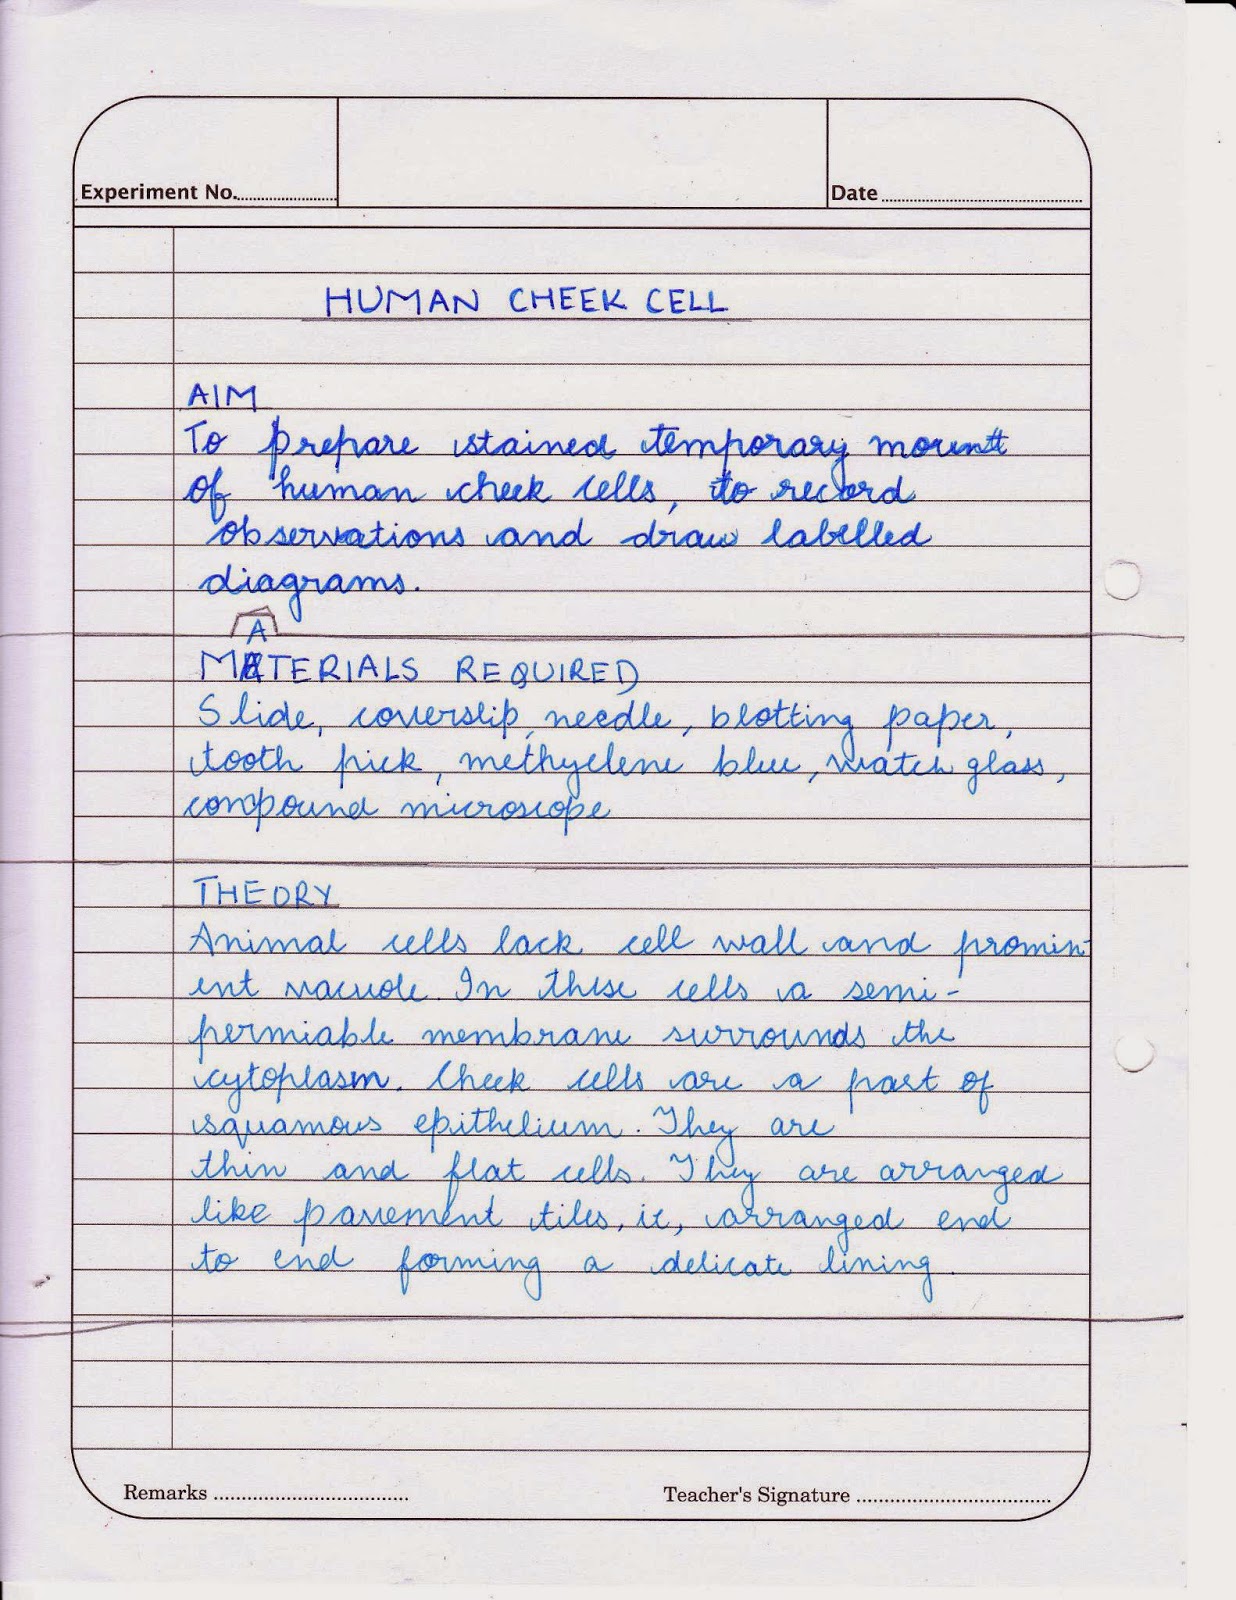 Experiment No.
Date
HUMAN CHEEK CELL
AIM
To prepare stained temporary mount
of human cheek cells, to record
observations and draw labelled
diagrams.
A
MATERIALS REQUIRED
Slide, coverslip, needle, blotting paper,
tooth pick, methyelene blue, watch glass,
compound microscope
THEORY
Animal cells lack cell wall and promin-
ent vacuole. In these cells a semi-
permiable membrane surrounds the
cytoplasm. Cheek cells are a part of
squamous epithelium. They are
thin and flat cells. They are arranged
like pavement tiles, ie, arranged end
to end forming a delicate lining.
Remarks
Teacher's Signature